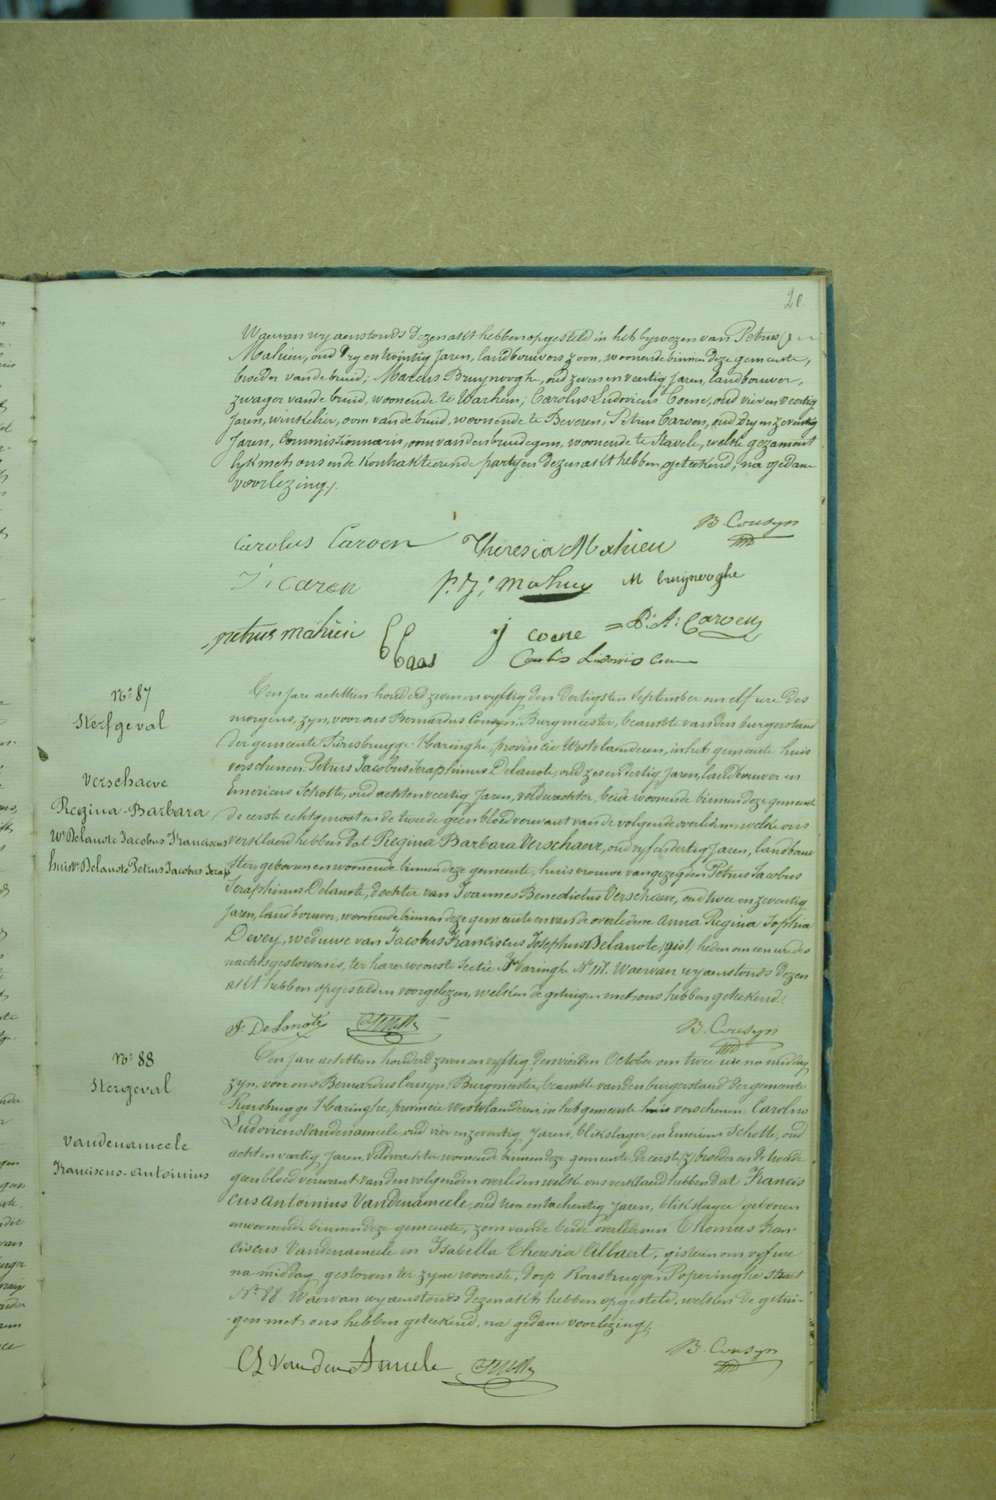 20
Waervan wy aenstonds dezen akt hebben opgesteld in het bywezen van Petrus
Mahieu, oud dry en twintig Jaren, landbouwers zoon, woonende binnen deze gemeente,
broeder van de bruid; Marcus Bruynooghe, oud zeven en veertig Jaren, landbouwer,
zwager van de bruid, woonende te Warhem; Carolus Ludovicus Coene, oud vier en veertig
Jaren, winkelier, oom van de bruid, woonende te Beveren; Petrus Caroen, oud dry en zeventig
Jaren, Commissionnaris, oom van den bruidegom, woonende te Stavele, welke gezament
lyk met ons en de kontrakteerende partyen dezen akt hebben geteekend, na gedaene
voorlezing.
B. Cousyn
Carolus Caroen Theresia Mahieu
caroen p. j. mahieu M bruijnooghe
petrus mahieu j coene P: A: Caroen
N° 87
Sterfgeval
Verschaeve
Regina-Barbara
We Delanote Jacobus Franciscus
huisve Delanote Petrus Jacobus Serap
Den Jare achttien honderd zeven en vyftig den dertigsten September om elf ure des
morgens, zyn, voor ons Bernardus Cousyn, Burgmeester, beambte van den burgerstand
der gemeente Rousbrugge-Haringhe, provincie Westvlaenderen, in het gemeente huis
verschenen Petrus Jacobus Seraphinus Delanote, oud zes en dertig Jaren, landbouwer en
Emericus Schotte, oud acht en veertig Jaren, veldwachter, beide woonende binnen deze gemeente
de eerste echtgenoot en de tweede geen bloedverwant van de volgende overledene, welke ons
verklaerd hebben dat Regina Barbara Verschaeve, oud vyf en dertig Jaren, landbouw
ster, geboren en woonende binnen deze gemeente, huisvrouwe van gezegden Petrus Jacobus
Seraphinus Delanote, dochter van Joannes Benedictus Verschaeve, oud twee en zeventig
Jaren, landbouwer, woonende binnen deze gemeente en van de overledene Anna Regina Sophia
Devey, weduwe van Jacobus Franciscus Josephus Delanote, is heden om een ure des
nachts gestorven is, ter harer woonste Sectie Haringhe N° 111. Waervan wy aenstonds dezen
akt hebben opgesteld en voorgelezen, welken de getuigen met ons hebben geteekend.
DeLanote B. Cousyn
N° 88
Stergeval
Vandenameele
Franciscus-Antoinius
Den Jare achttien honderd zeven en vyftig, den vierden October om twee ure na middag
zyn, voor ons Bernardus Cousyn, Burgmeester, beambte van den burgerstand der gemeente
Rousbrugge Haringhe, provincie Westvlaenderen in het gemeente huis verschenen Carolus
Ludovicus Vandenameele, oud vier en zeventig Jaren, blikslager, en Emericus Schotte, oud
acht en veertig Jaren, veldwachter woonende binnen deze gemeente, de eerste broeder en de tweede
geen bloedverwant van den volgenden overleden welke ons verklaerd hebben dat Francis
cus Antoinius Vandenameele, oud een en tachentig Jaren, blikslager geboren
en woonende binnen deze gemeente, zoon van de beide overledenen Thomas Fran
ciscus Vandenameele en Isabella Theresia Albaert, gisteren om vyf ure
na middag gestorven ter zyne woonste, Dorp Rousbrugge Poperinghe straet
N° 88. Waervan wy aenstonds dezen akt hebben opgesteld, welken de getui-
gen met ons hebben geteekend, na gedane voorlezing.
B. Cousyn
CL VandenAmeele